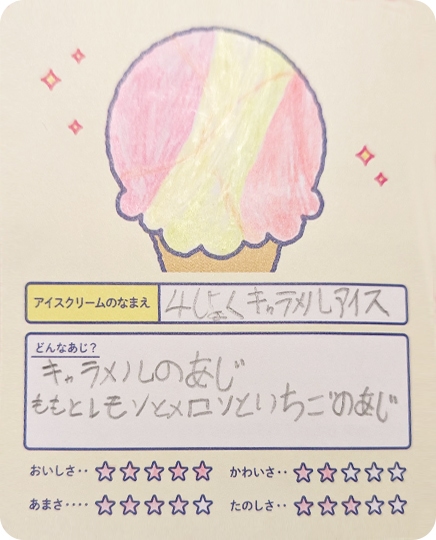 アイスクリームのなまえ
4しょくキャラメルアイス
どんなあじ?
キャラメルのあじ
ももとレモンとメロンといちごのあじ
おいしさ‥ ★★★★★ かわいさ‥ ★★☆☆☆
あまさ‥‥ ★★★★☆ たのしさ‥ ★★★☆☆